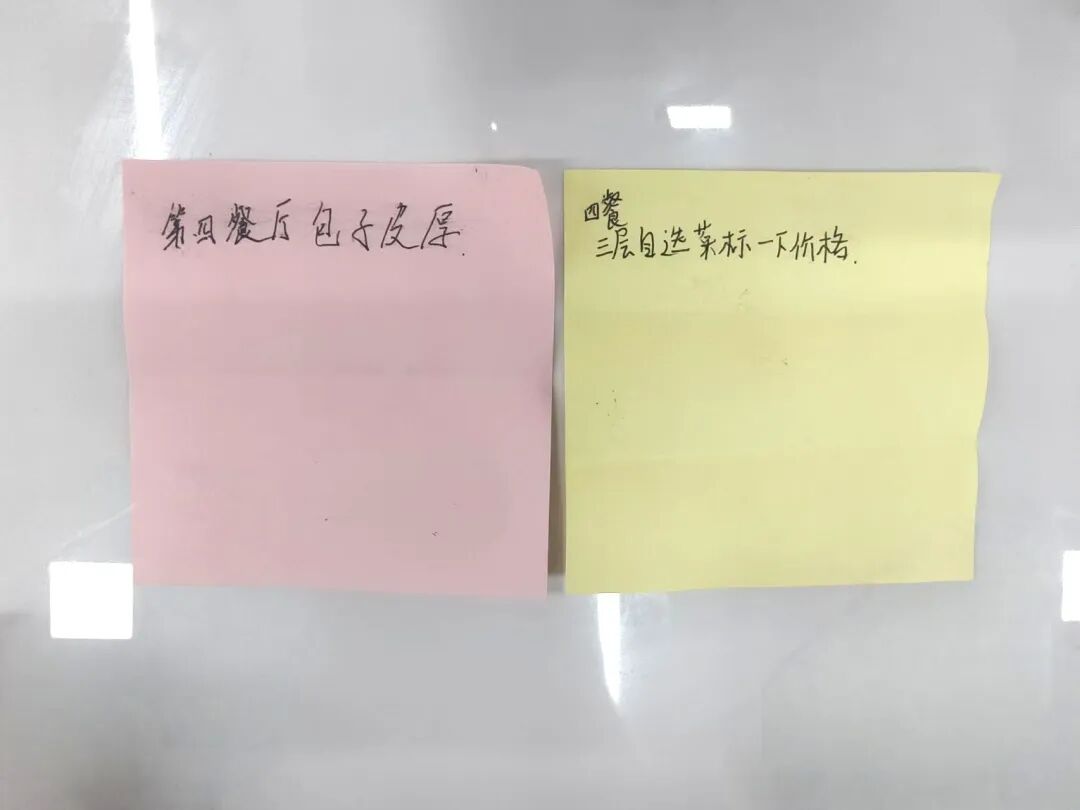 第四餐厅包子皮厚.
四餐
三层自选菜标一下价格.